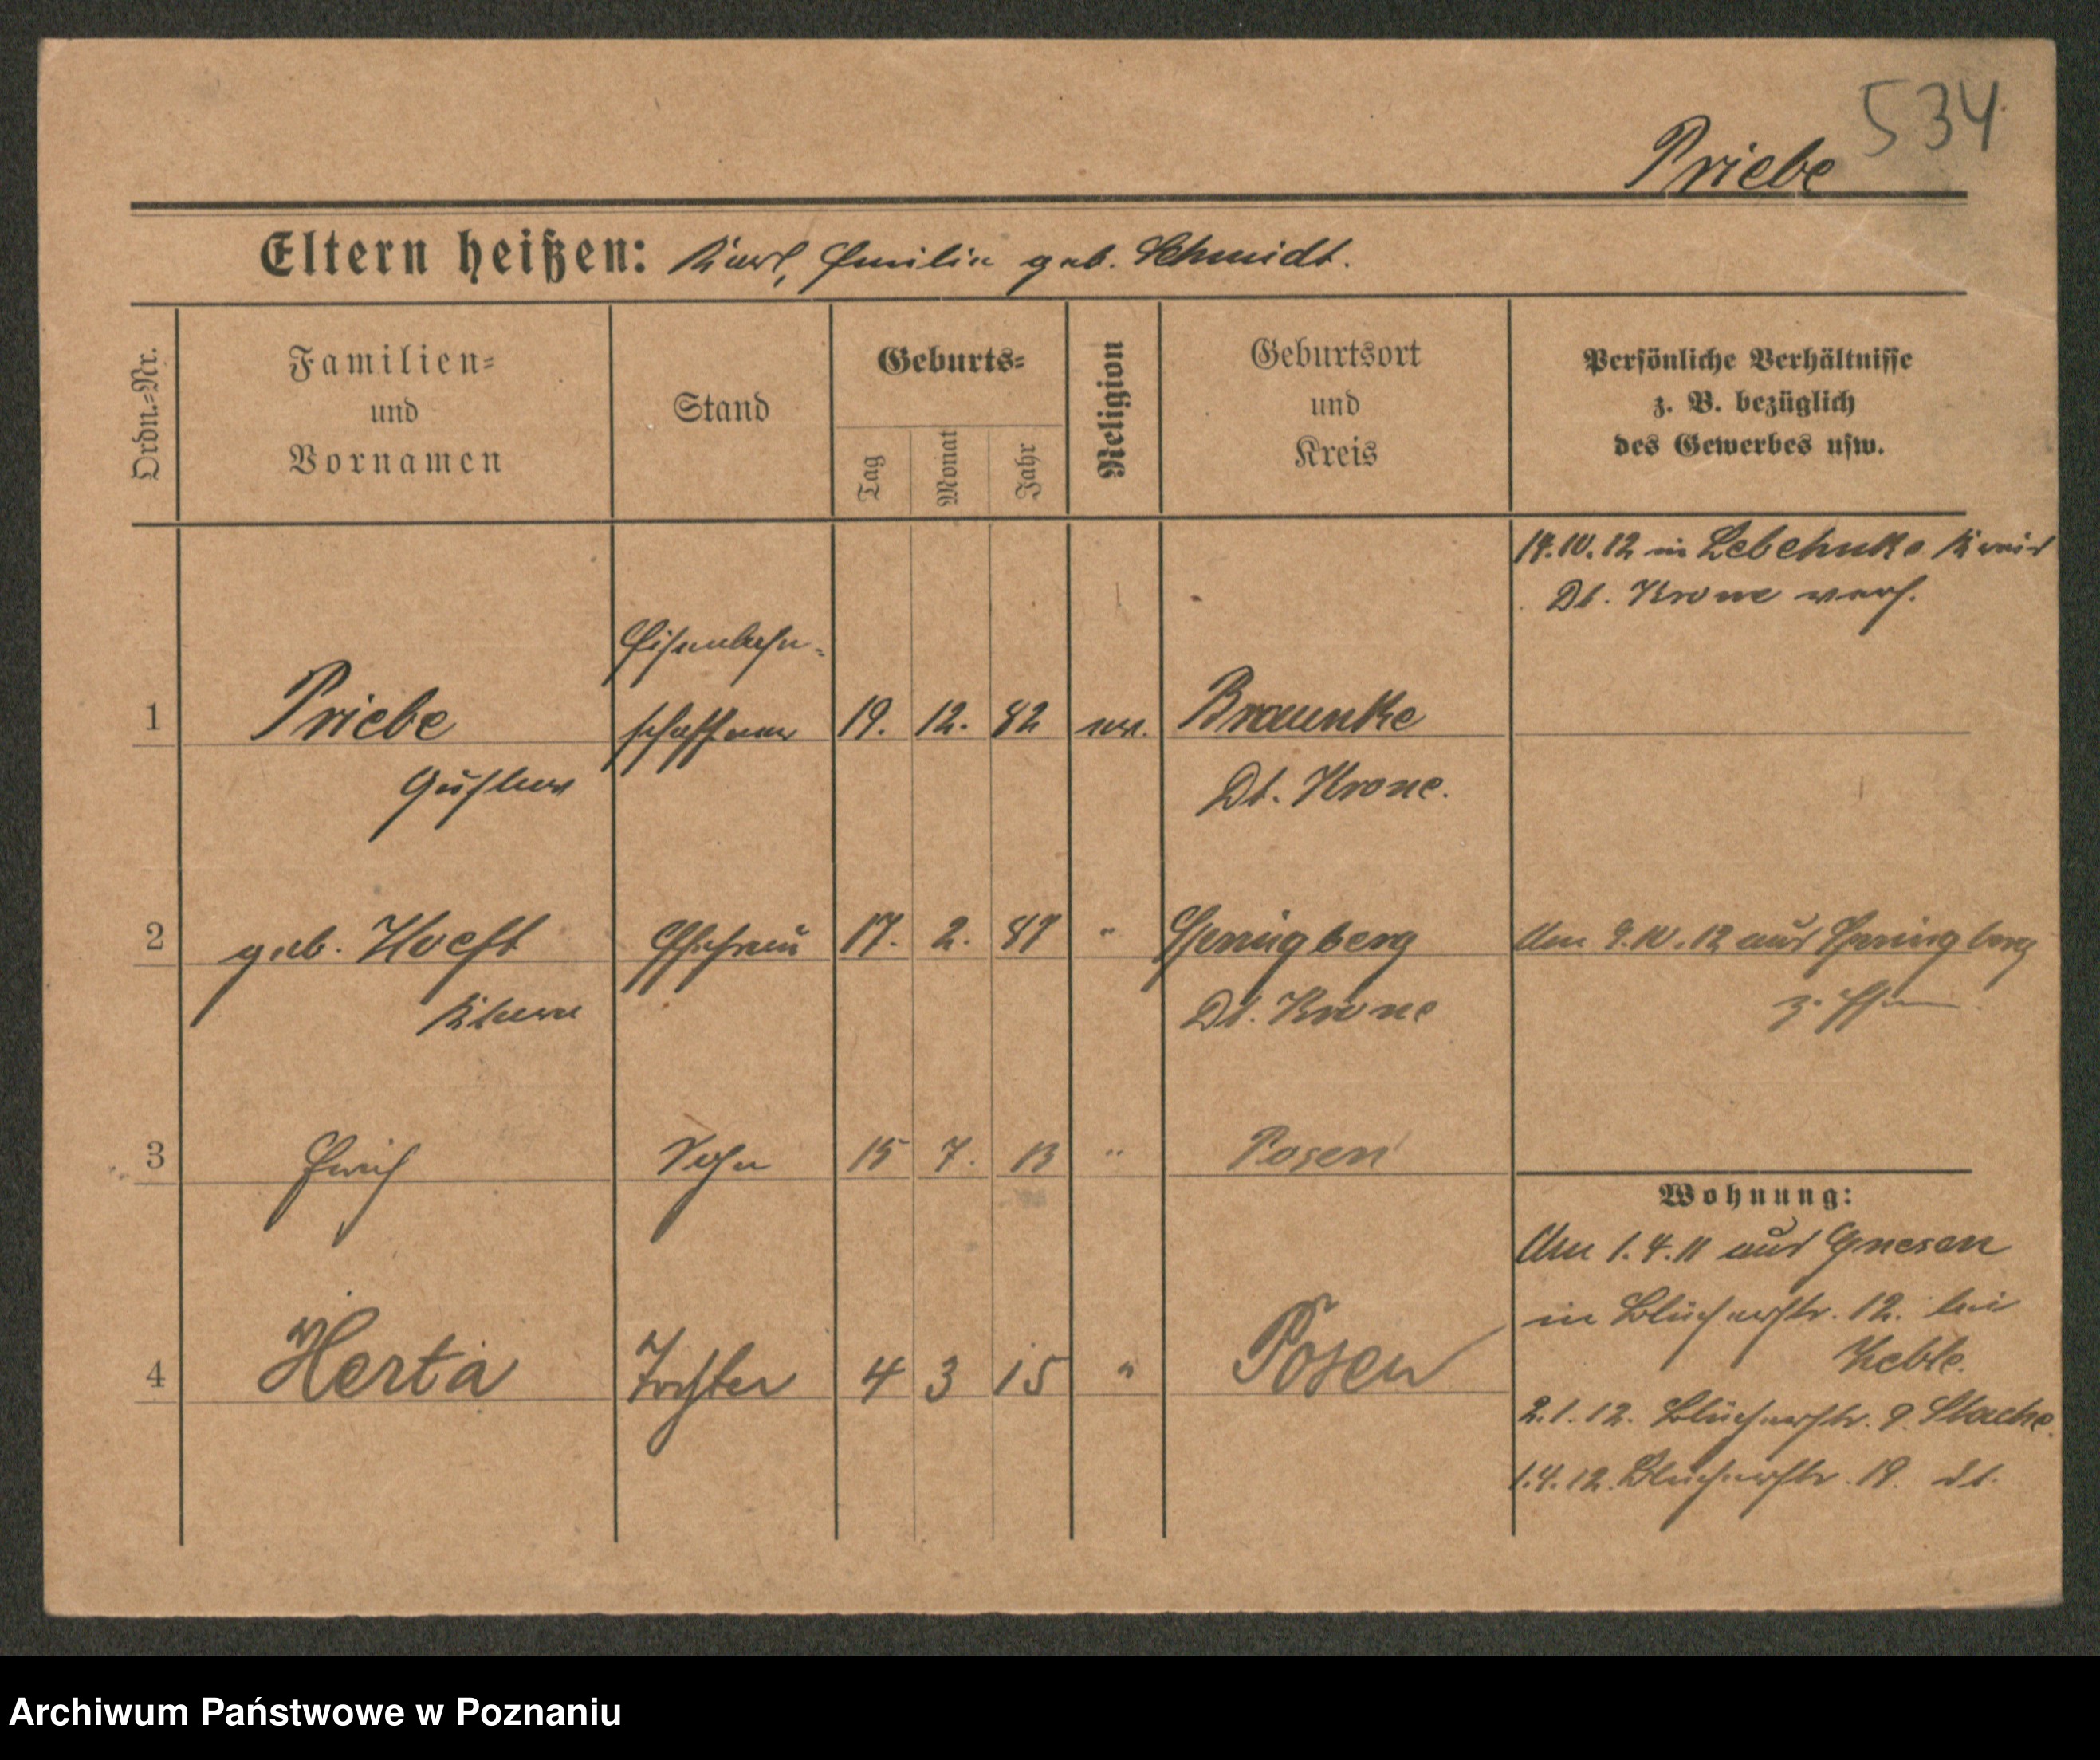 534
Priebe
Eltern heißen: Karl, Emilie geb. Schmidt.
Ordn.-Nr.
Familien-
und
Vornamen
Stand
Geburts-
Tag
Monat
Jahr
Religion
Geburtsort
und
Kreis
Persönliche Verhältnisse
z. B. bezüglich
des Gewerbes usw.
in Lebehnke Kreis
Dt. Krone verh.
Eisenbahn-
1 Priebe schaffner 19. 12. 82 ev. Braunke
Gustav Dt. Krone.
2 geb. Hoeft Ehefrau 17. 2. " Springberg Am 9.10.12 aus Springberg
Klara Dt. Krone z. Ehem
3 Erich Sohn 15 7. 13 " Posen
Wohnung:
Am 1.4.11 aus Gnesen
in Blücherstr. 12. bei
4 Herta Tochter 4 3 15 " Posen
2.1.12. Blücherstr. 9.
1.4.12. Blücherstr. 19. dt.
Archiwum Państwowe w Poznaniu